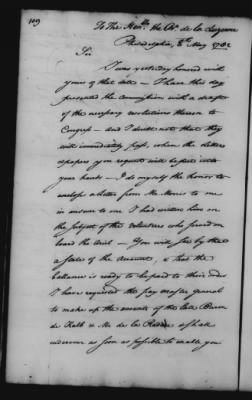 109
To The Honble. the Chr. de la Luzerne
Philadelphia, 8th. May 1782
Sir
I was yesterday honored with
yours of that date — I have this day
presented the Commission with a draft
of the necessary resolutions thereon to
Congress — And I doubt not that they
will immediately pass, when the letters
&papers you request will be put into
your hands — I do myself the honor to
enclose a letter from Mr. Morris to me
in answer to one I had written him on
the subject of the volunteers who served on
board the Ariel — You will see by that
a state of the Accounts, & that the
ballance is ready to be paid to their order
I have requested the pay master general
to make up the accounts of the late Baron
de Kalb & Mr. de la & shall
endeavour as soon as possible to enable you